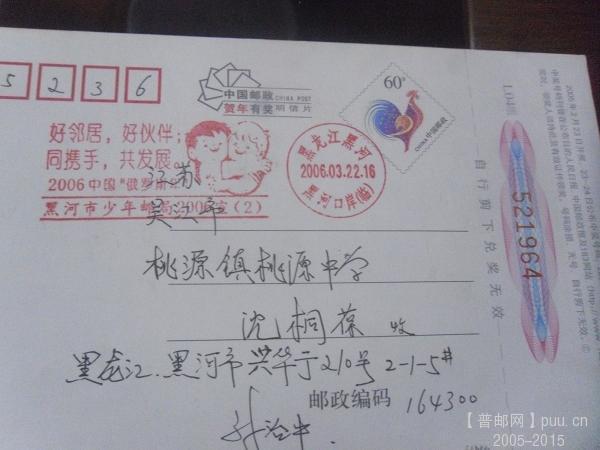 5 2 3 6
中国邮政 CHINA POST
贺年有奖明信片
60分
中国邮政 CHINA
好邻居，好伙伴；
同携手，共发展。
2006中国"俄罗斯年"
黑河市少年邮局2006宣(2)
黑龙江黑河
2006.03.22.16
黑河口岸(临)
江苏
吴江市
桃源镇桃源中学
沈桐葆 收
黑龙江.黑河市兴华于210号 2-1-5#
邮政编码 164300
自行剪下兑奖无效
L04组
521964
【普邮网】puu.cn
2005-2015